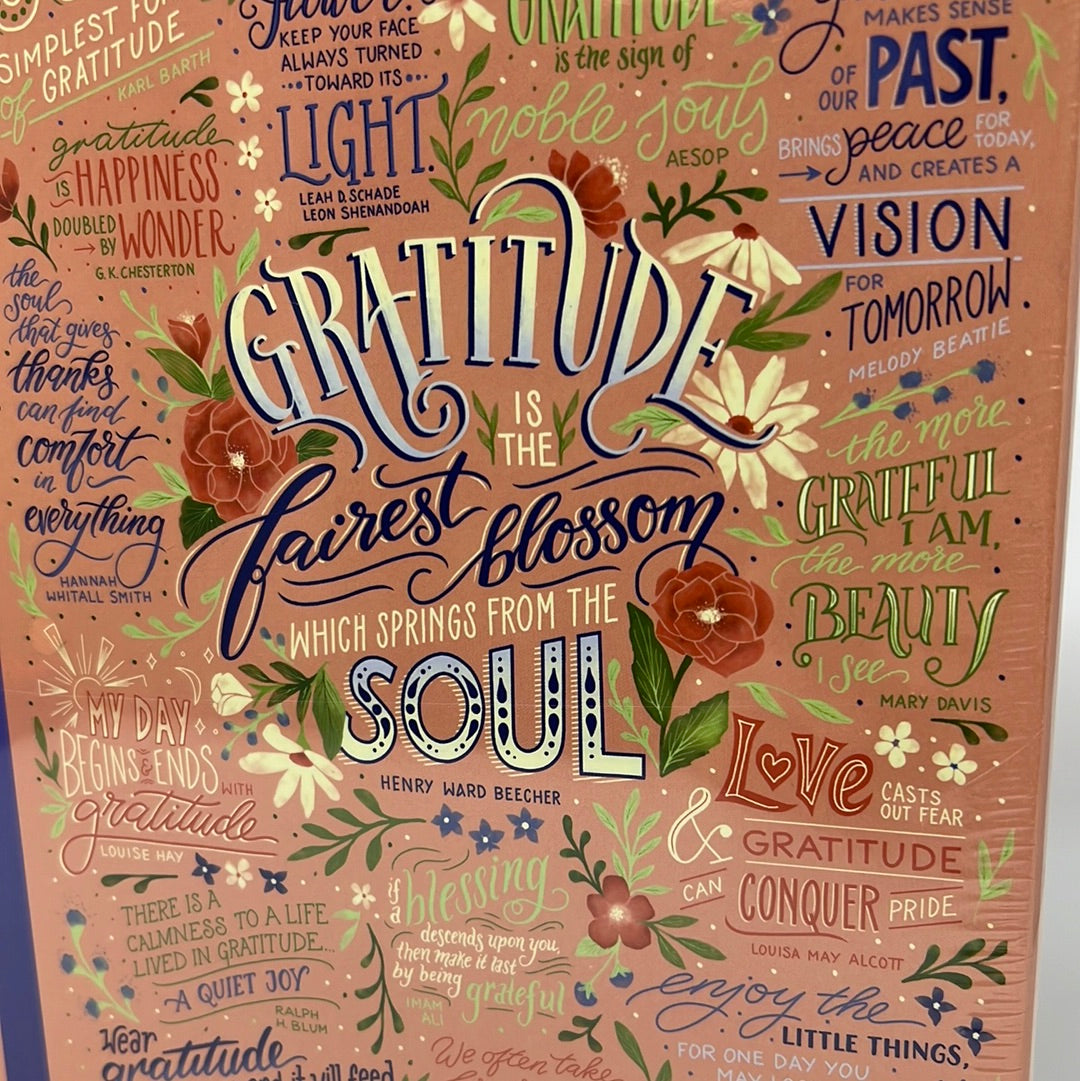 SIMPLEST FORM
of GRATITUDE
KARL BARTH
KEEP YOUR FACE
ALWAYS TURNED
TOWARD ITS
LIGHT.
LEAH D. SCHADE
LEON SHENANDOAH
GRATITUDE
is the sign of
noble souls
AESOP
MAKES SENSE
OF OUR PAST,
BRINGS peace FOR TODAY,
AND CREATES A
VISION
FOR
TOMORROW.
MELODY BEATTIE
gratitude
IS HAPPINESS
DOUBLED
BY WONDER
G.K. CHESTERTON
the
soul
that gives
thanks
can find
comfort
in
everything
HANNAH
WHITALL SMITH
GRATITUDE
IS
THE
fairest blossom
WHICH SPRINGS FROM THE
SOUL
HENRY WARD BEECHER
the more
GRATEFUL
I AM,
the more
BEAUTY
I see
MARY DAVIS
MY DAY
BEGINS & ENDS
WITH
gratitude
LOUISE HAY
LOVE CASTS
OUT FEAR
& GRATITUDE
CAN CONQUER PRIDE
LOUISA MAY ALCOTT
THERE IS A
CALMNESS TO A LIFE
LIVED IN GRATITUDE...
A QUIET JOY
RALPH
H. BLUM
if a blessing
descends upon you,
then make it last
by being grateful
IMAM
ALI
enjoy the
LITTLE THINGS,
FOR ONE DAY YOU
Wear
gratitude
and it will feed
We often take